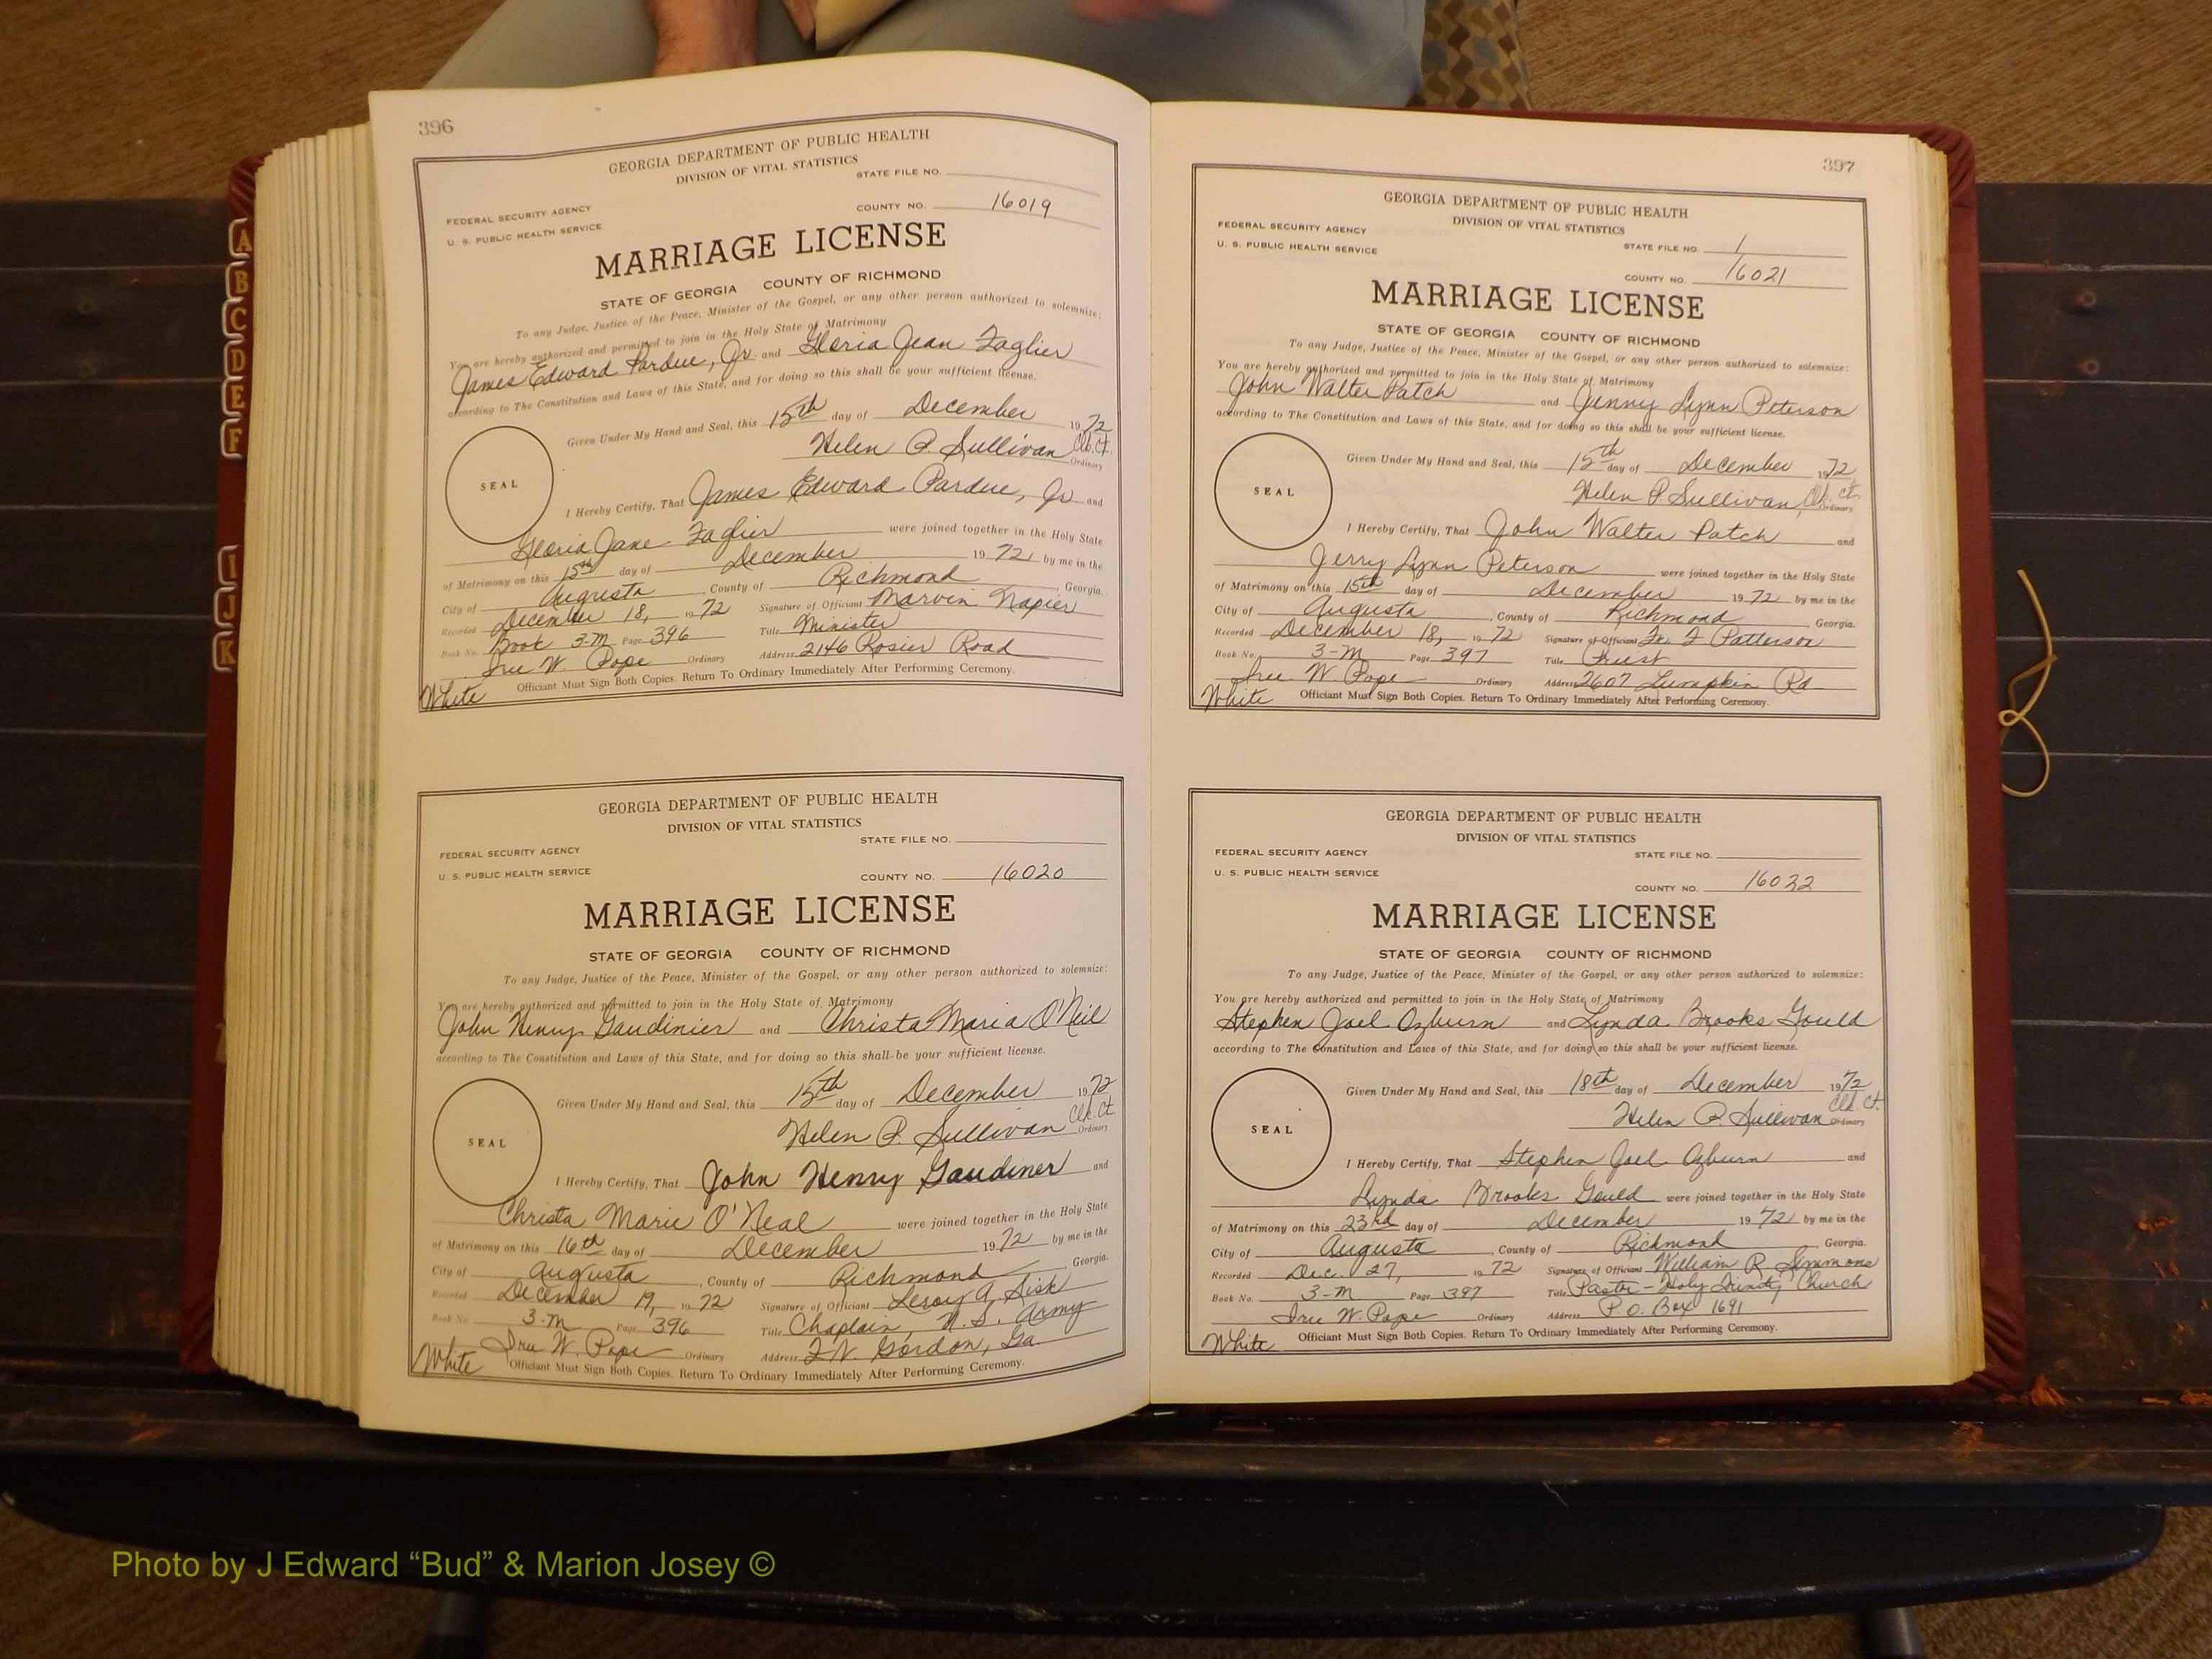 396
GEORGIA DEPARTMENT OF PUBLIC HEALTH
DIVISION OF VITAL STATISTICS
STATE FILE NO.
FEDERAL SECURITY AGENCY
COUNTY NO. 16019
U. S. PUBLIC HEALTH SERVICE
MARRIAGE LICENSE
STATE OF GEORGIA COUNTY OF RICHMOND
To any Judge, Justice of the Peace, Minister of the Gospel, or any other person authorized to solemnize:
You are hereby authorized and permitted to join in the Holy State of Matrimony
James Edward Pardue, Jr. and Gloria Jean Faglier
according to The Constitution and Laws of this State, and for doing so this shall be your sufficient license.
Given Under My Hand and Seal, this 15th day of December 1972
Helen P. Sullivan Clk. Ct.
Ordinary
SEAL
I Hereby Certify, That James Edward Pardue, Jr and
Gloria Jane Faglier were joined together in the Holy State
of Matrimony on this 15th day of December 1972 by me in the
City of Augusta, County of Richmond, Georgia.
Recorded December 18, 1972 Signature of Officiant Marvin Napier
Book No. Book 3-M Page 396 Title Minister
Iree W. Pope Ordinary Address 2146 Rosier Road
White Officiant Must Sign Both Copies. Return To Ordinary Immediately After Performing Ceremony.
GEORGIA DEPARTMENT OF PUBLIC HEALTH
DIVISION OF VITAL STATISTICS
STATE FILE NO.
FEDERAL SECURITY AGENCY
U. S. PUBLIC HEALTH SERVICE COUNTY NO. 16020
MARRIAGE LICENSE
STATE OF GEORGIA COUNTY OF RICHMOND
To any Judge, Justice of the Peace, Minister of the Gospel, or any other person authorized to solemnize:
You are hereby authorized and permitted to join in the Holy State of Matrimony
John Henry Gaudinier and Christa Maria O'Neil
according to The Constitution and Laws of this State, and for doing so this shall be your sufficient license.
Given Under My Hand and Seal, this 15th day of December 1972
Helen P. Sullivan Clk. Ct.
Ordinary
SEAL
I Hereby Certify, That John Henry Gaudiner and
Christa Marie O'Neal were joined together in the Holy State
of Matrimony on this 16th day of December 1972 by me in the
City of Augusta, County of Richmond, Georgia.
Recorded December 19, 1972 Signature of Officiant Leroy A. Sisk
Book No. 3-M Page 396 Title Chaplain, U.S. Army
Iree W. Pope Ordinary Address Ft. Gordon, Ga.
White Officiant Must Sign Both Copies. Return To Ordinary Immediately After Performing Ceremony.
397
GEORGIA DEPARTMENT OF PUBLIC HEALTH
DIVISION OF VITAL STATISTICS
FEDERAL SECURITY AGENCY
U. S. PUBLIC HEALTH SERVICE STATE FILE NO. /
COUNTY NO. 16021
MARRIAGE LICENSE
STATE OF GEORGIA COUNTY OF RICHMOND
To any Judge, Justice of the Peace, Minister of the Gospel, or any other person authorized to solemnize:
You are hereby authorized and permitted to join in the Holy State of Matrimony
John Walter Patch and Jenny Lynn Peterson
according to The Constitution and Laws of this State, and for doing so this shall be your sufficient license.
Given Under My Hand and Seal, this 15th day of December 1972
Helen P. Sullivan, Clk. Ct.
Ordinary
SEAL
I Hereby Certify, That John Walter Patch and
Jerry Lynn Peterson were joined together in the Holy State
of Matrimony on this 15th day of December 1972 by me in the
City of Augusta, County of Richmond, Georgia.
Recorded December 18, 1972 Signature of Officiant Fr. F Patterson
Book No. 3-M Page 397 Title Priest
Iree W. Pope Ordinary Address 2607 Lumpkin Rd
White Officiant Must Sign Both Copies. Return To Ordinary Immediately After Performing Ceremony.
GEORGIA DEPARTMENT OF PUBLIC HEALTH
DIVISION OF VITAL STATISTICS
FEDERAL SECURITY AGENCY STATE FILE NO.
U. S. PUBLIC HEALTH SERVICE
COUNTY NO. 16022
MARRIAGE LICENSE
STATE OF GEORGIA COUNTY OF RICHMOND
To any Judge, Justice of the Peace, Minister of the Gospel, or any other person authorized to solemnize:
You are hereby authorized and permitted to join in the Holy State of Matrimony
Stephen Joel Ozburn and Lynda Brooks Gould
according to The Constitution and Laws of this State, and for doing so this shall be your sufficient license.
Given Under My Hand and Seal, this 18th day of December 1972
Helen P. Sullivan Clk. Ct.
Ordinary
SEAL
I Hereby Certify, That Stephen Joel Ozburn and
Lynda Brooks Gould were joined together in the Holy State
of Matrimony on this 23rd day of December 1972 by me in the
City of Augusta, County of Richmond, Georgia.
Recorded Dec. 27, 1972 Signature of Officiant William R Simmons
Book No. 3-M Page 397 Title Pastor - Holy Trinity Church
Iree W. Pope Ordinary Address P.O. Box 1691
White Officiant Must Sign Both Copies. Return To Ordinary Immediately After Performing Ceremony.
A
B
C
D
E
F
I
J
K
Photo by J Edward “Bud” & Marion Josey ©